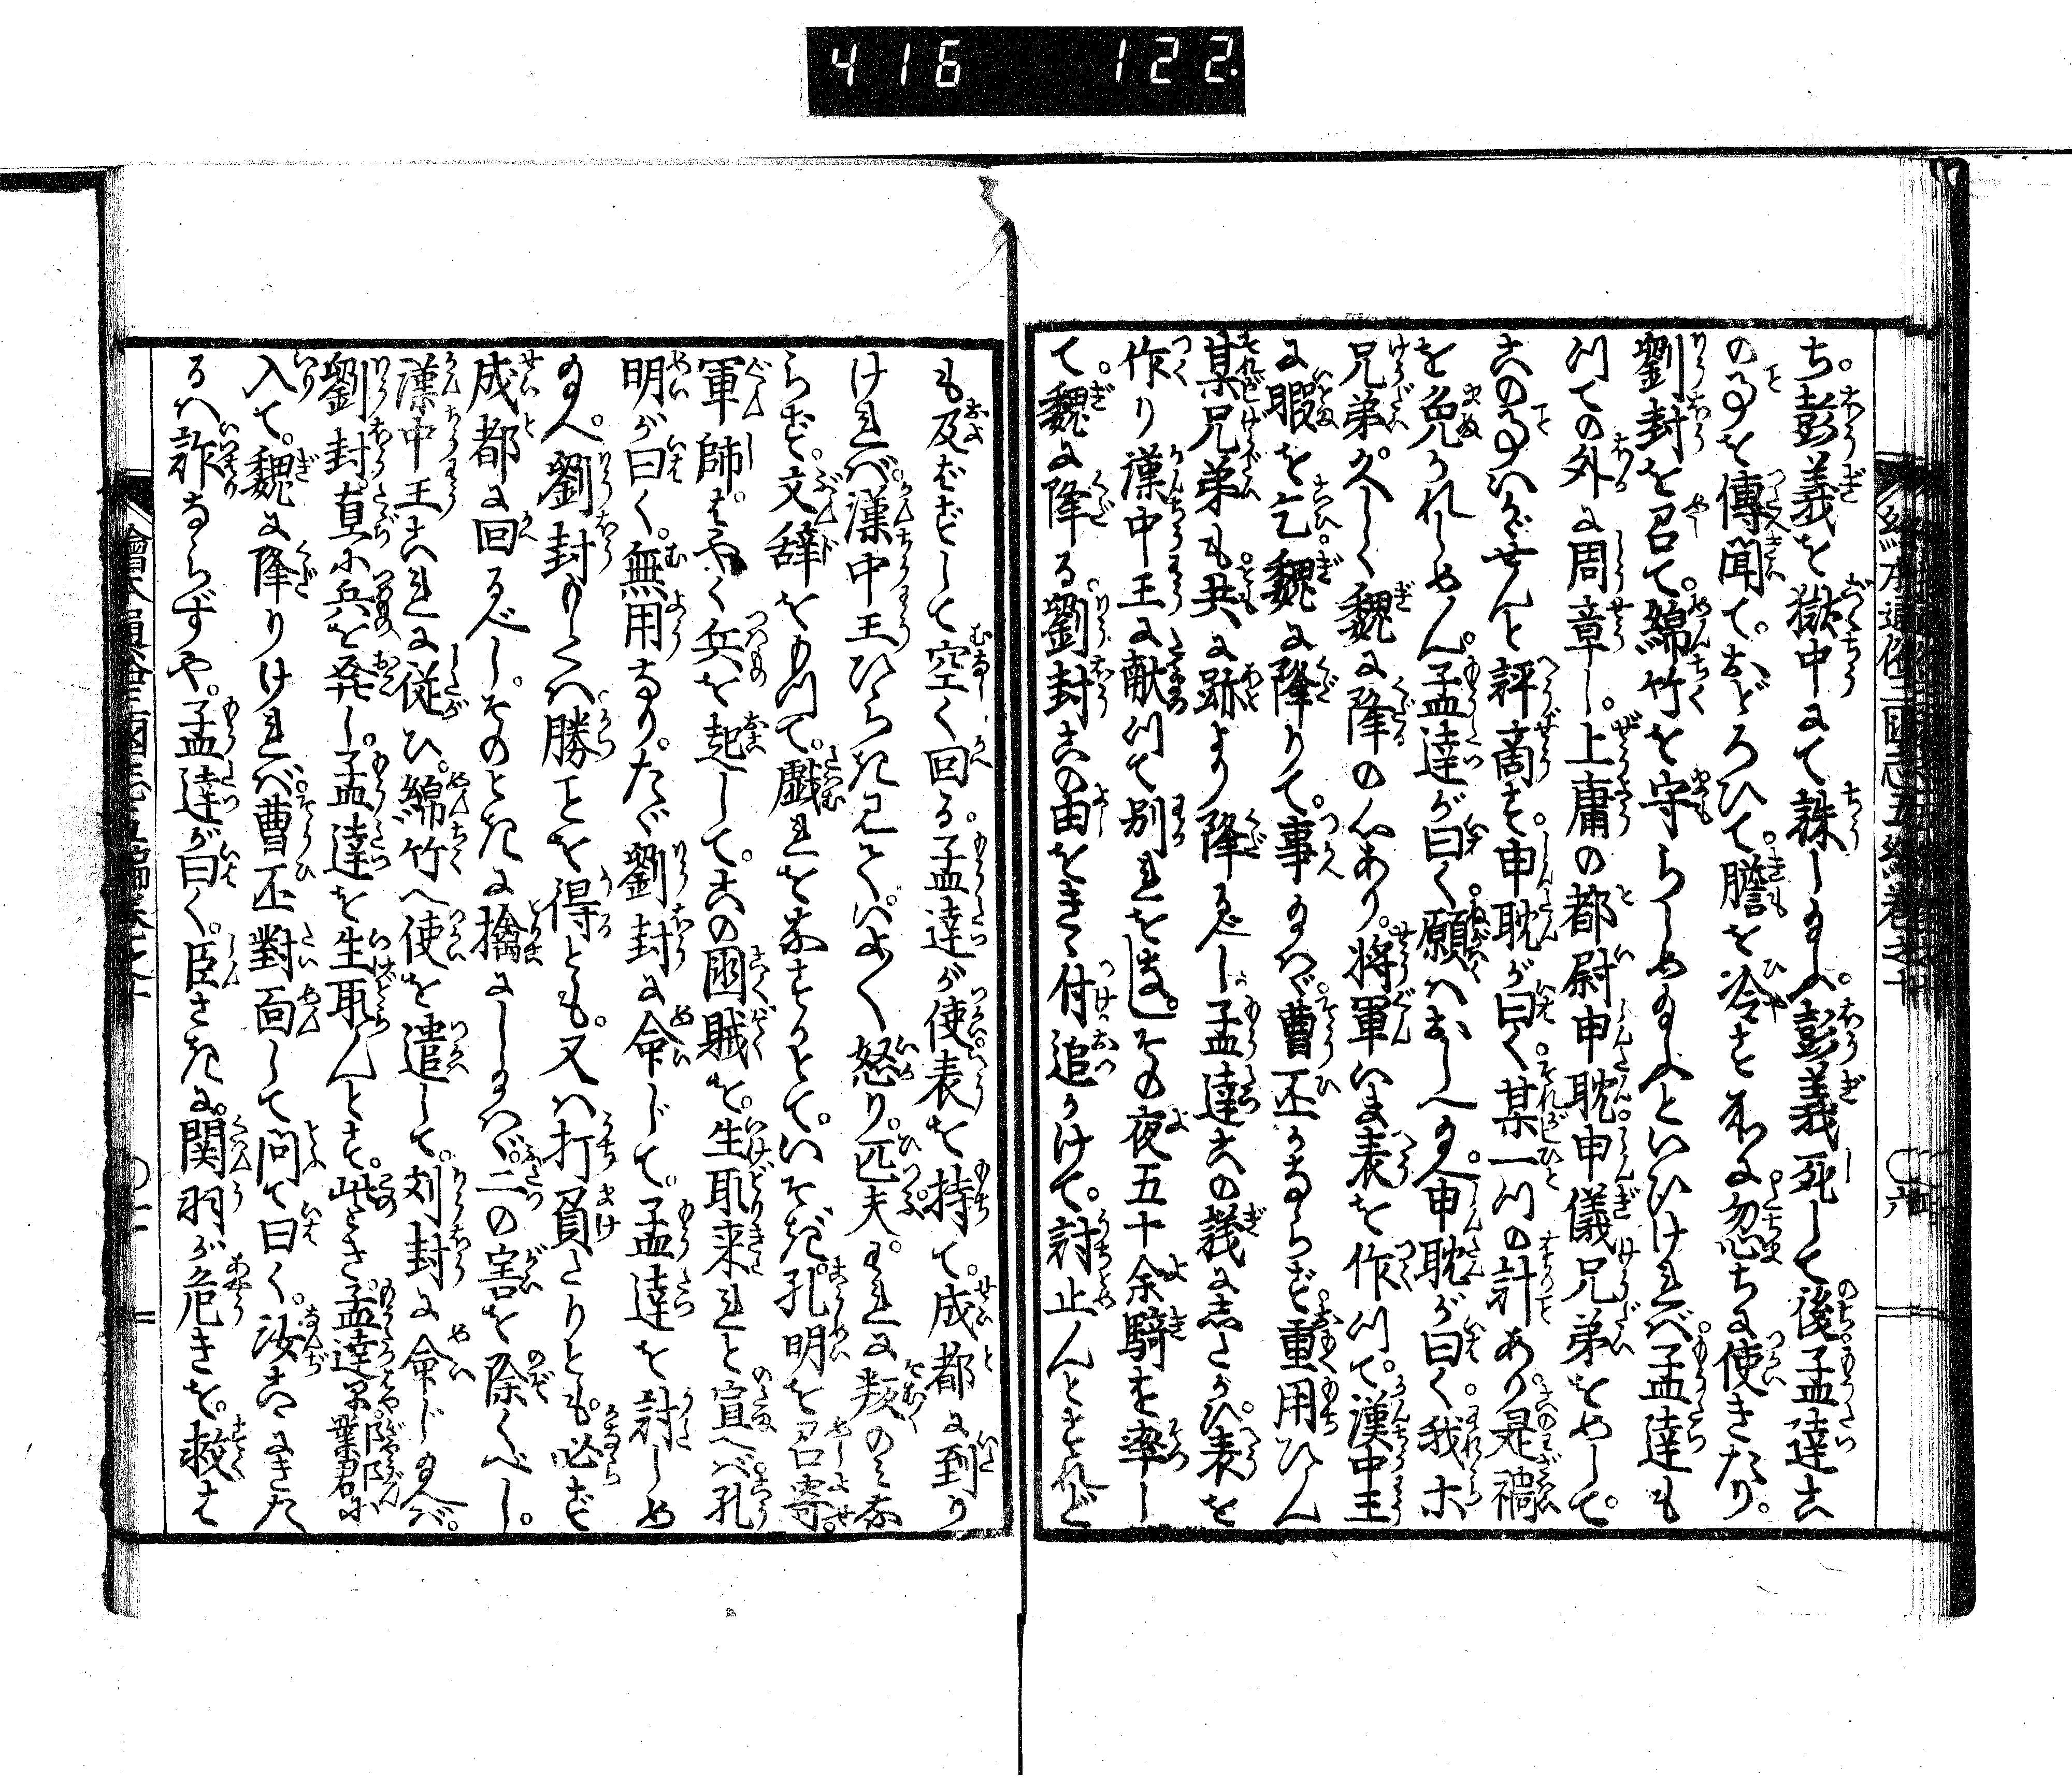 416 122.
ち。彭義を獄中にて誅し玉ふ。彭義死して後。孟達こ
の事を傳聞て。おどろひて。膽を冷す所に忽ちに使きたり。
劉封を召て。綿竹を守らしめ玉ふといひければ。孟達も
以ての外に周章し。上庸の都尉申耽。申儀兄弟をめして。
この事いかゞせんと評商す。申耽が曰く。某一ツの計あり。是禍
を免かれしめん。孟達が曰く。願くはおしへ玉へ。申耽が曰く。我ホ
兄弟。久しく魏に降の心あり。将軍いま表を作つて。漢中王
に暇を乞。魏に降りて。事玉はゞ。曹丕かならず。重用ひん
某兄弟も。共に跡より降るべし。孟達この議にしたがひ。表を
作り漢中王に献つて別れを告。その夜五十余騎を率し
て。魏に降る。劉封この由をきゝ。付追かけて。討止んとすれど
も及ばずして空く回る。孟達が使表を持て。成都に到り
ければ。漢中王ひらき見て。いよ〱怒り。匹夫。われに叛のみな
らず。文辞をもつて。戯れをなすかとて。いそぎ。孔明を召寄。
軍師。はやく兵を起して。この国賊を。生取来れと宣へば。孔
明が曰く。無用なり。たゞ劉封に命じて。孟達を討しめ
玉へ。劉封もしくは勝ことを得とも。又は打負たりとも。必ず
成都に回るべし。そのときに擒にし玉はゞ。二の害を除くべし。
漢中王これに従ひ。綿竹へ使を遣して。刘封に命じ玉へば。
劉封。直に兵を発し。孟達を生取んとす。此とき孟達早鄴郡に
入て。魏に降りければ。曹丕對面して問て曰く。汝こゝにきた
るは詐ならずや。孟達が曰く。臣さきに。関羽が危きを。救は